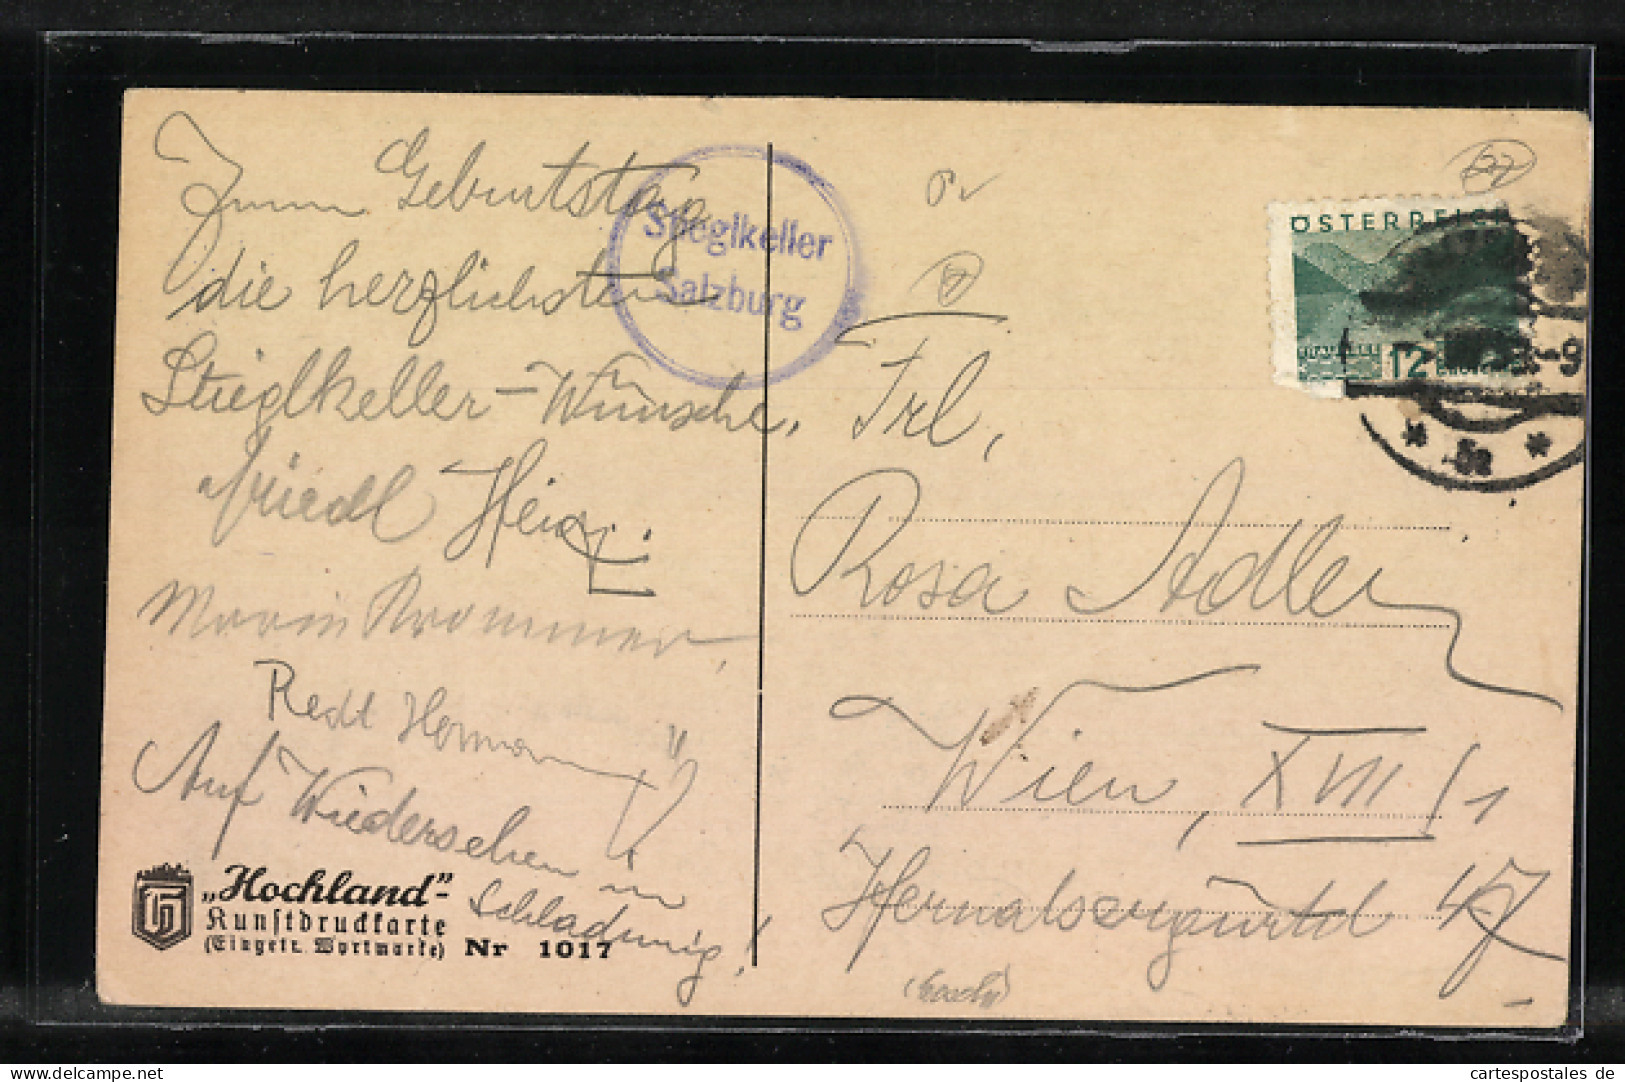 Zum Geburtstag
die herzlichsten
Stieglkeller-Wünsche.
Friedl Hein
Maria Krommer,
Redt Hermann
Auf Wiedersehen in
Schladming!
Stieglkeller
Salzburg
„Hochland“-
Kunstdruckkarte
(Eingetr. Wortmarke) Nr 1017
ÖSTERREICH
12
Frl,
Rosa Adler
Wien, XVIII/1
Hernalsergürtel 47
cartespostales de